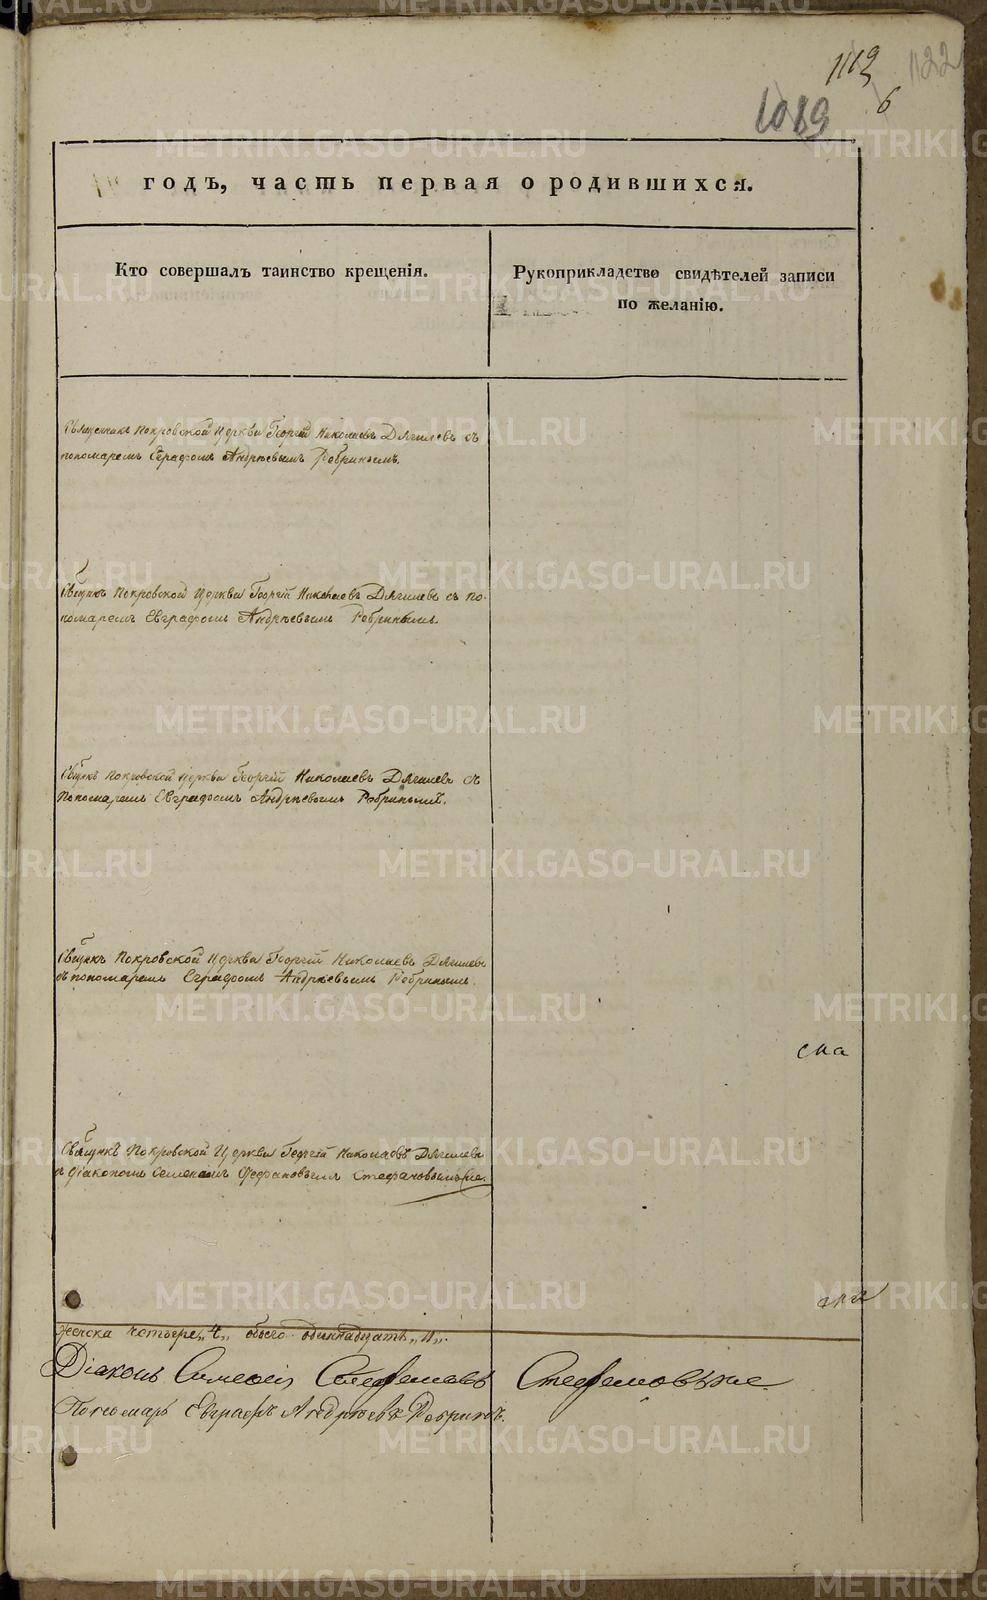 1113
1122
1019
6
годъ, часть первая о родившихся.
Кто совершалъ таинство крещенія.
Рукоприкладство свидѣтелей записи
по желанію.
Священникъ Покровской Церкви Георгій Николаевъ Дягилевъ съ
пономаремъ Еграфомъ Андрѣевымъ Ребринымъ.
Свщнкъ Покровской Церкви Георгій Николаевъ Дягилевъ съ по-
номаремъ Евграфомъ Андрѣевымъ Ребринымъ
Свщнкъ Покровской Церкви Георгій Николаевъ Дягилевъ съ
Пономаремъ Евграфомъ Андрѣевымъ Ребринымъ.
Свщнкъ Покровской Церкви Георгій Николаевъ Дягилевъ
съ пономаремъ Еграфомъ Андрѣевымъ Ребринымъ.
Свящнкъ Покровской Церкви Георгій Николаевъ Дягилевъ
съ діакономъ Семеномъ Стефановымъ же.
женска четыре „4„ обоего одиннадцать „11„.
Діаконъ Симеонъ Стефановъ Стефановъ же
Пономарь Евграфъ Андрѣевъ Ребринъ.
METRIKI.GASO-URAL.RU